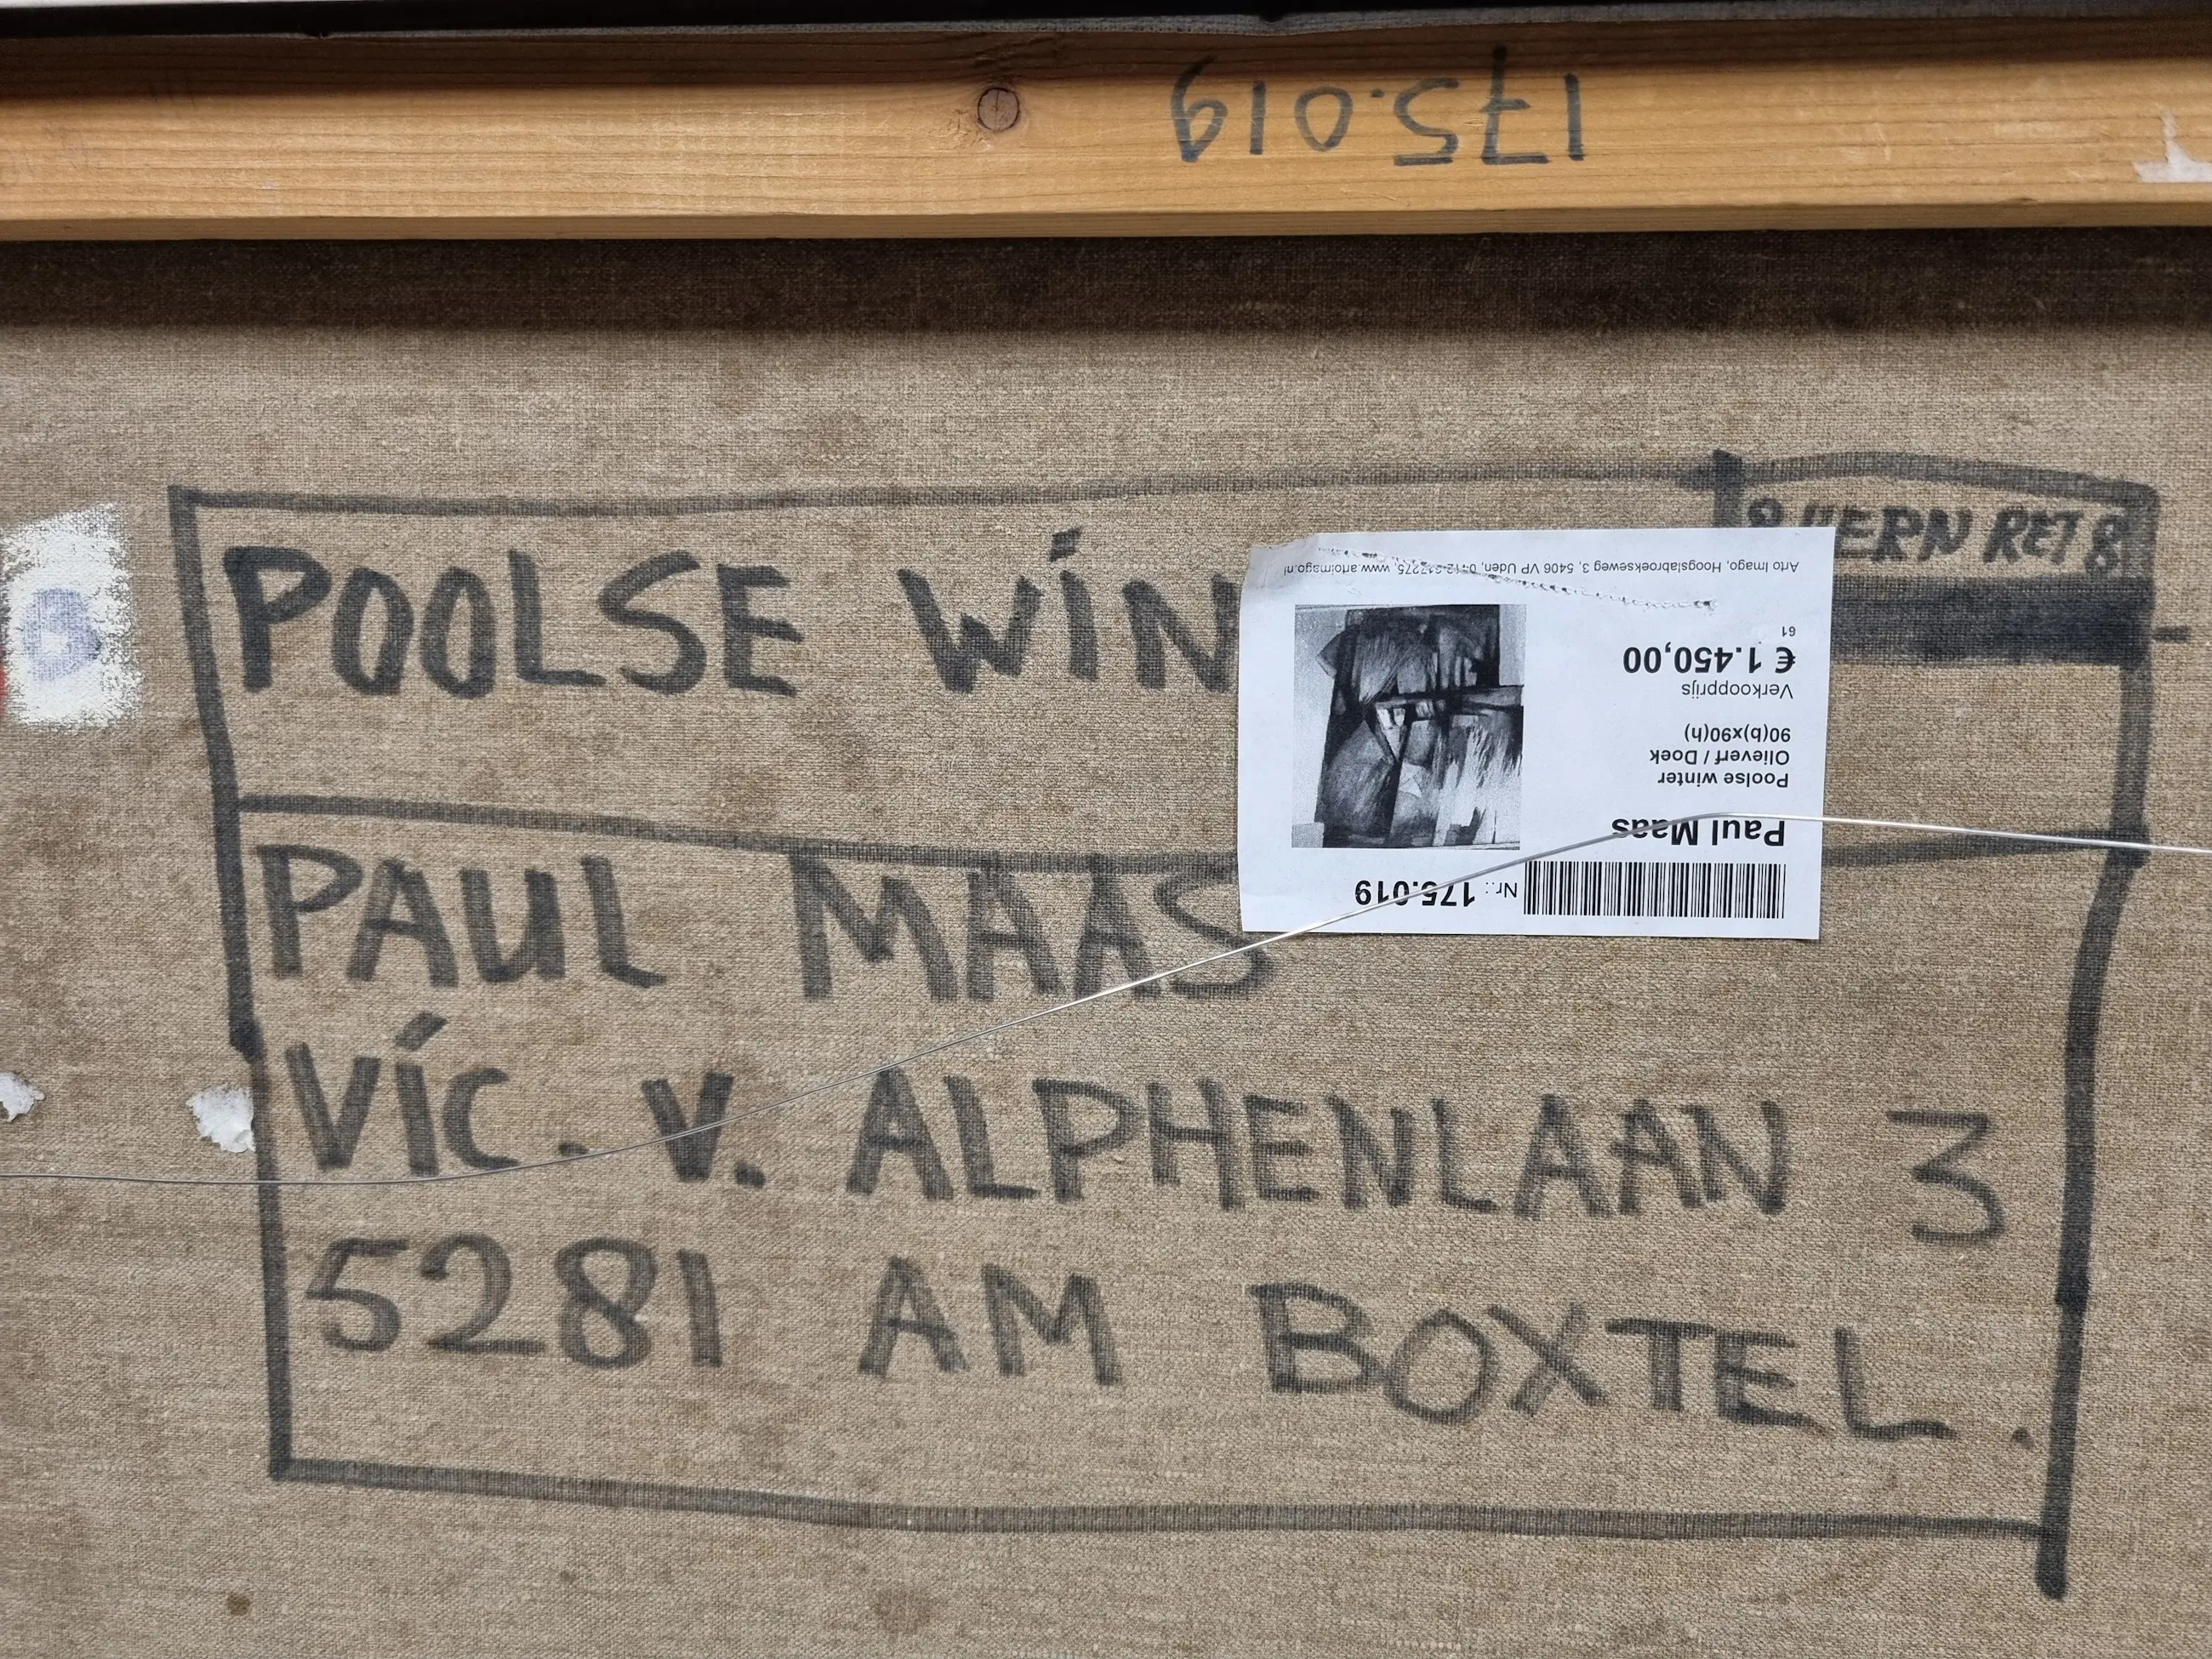 175.019
VERN RET 8
POOLSE WIN
PAUL MAAS
VIC. V. ALPHENLAAN 3
5281 AM BOXTEL.
Nr.: 175.019
Paul Maas
Poolse winter
Olieverf / Doek
90(b)x90(h)
Verkoopprijs
€ 1.450,00
61
Arto Imago, Hoogslabroekseweg 3, 5406 VP Uden, 0412-617275, www.artoimago.nl